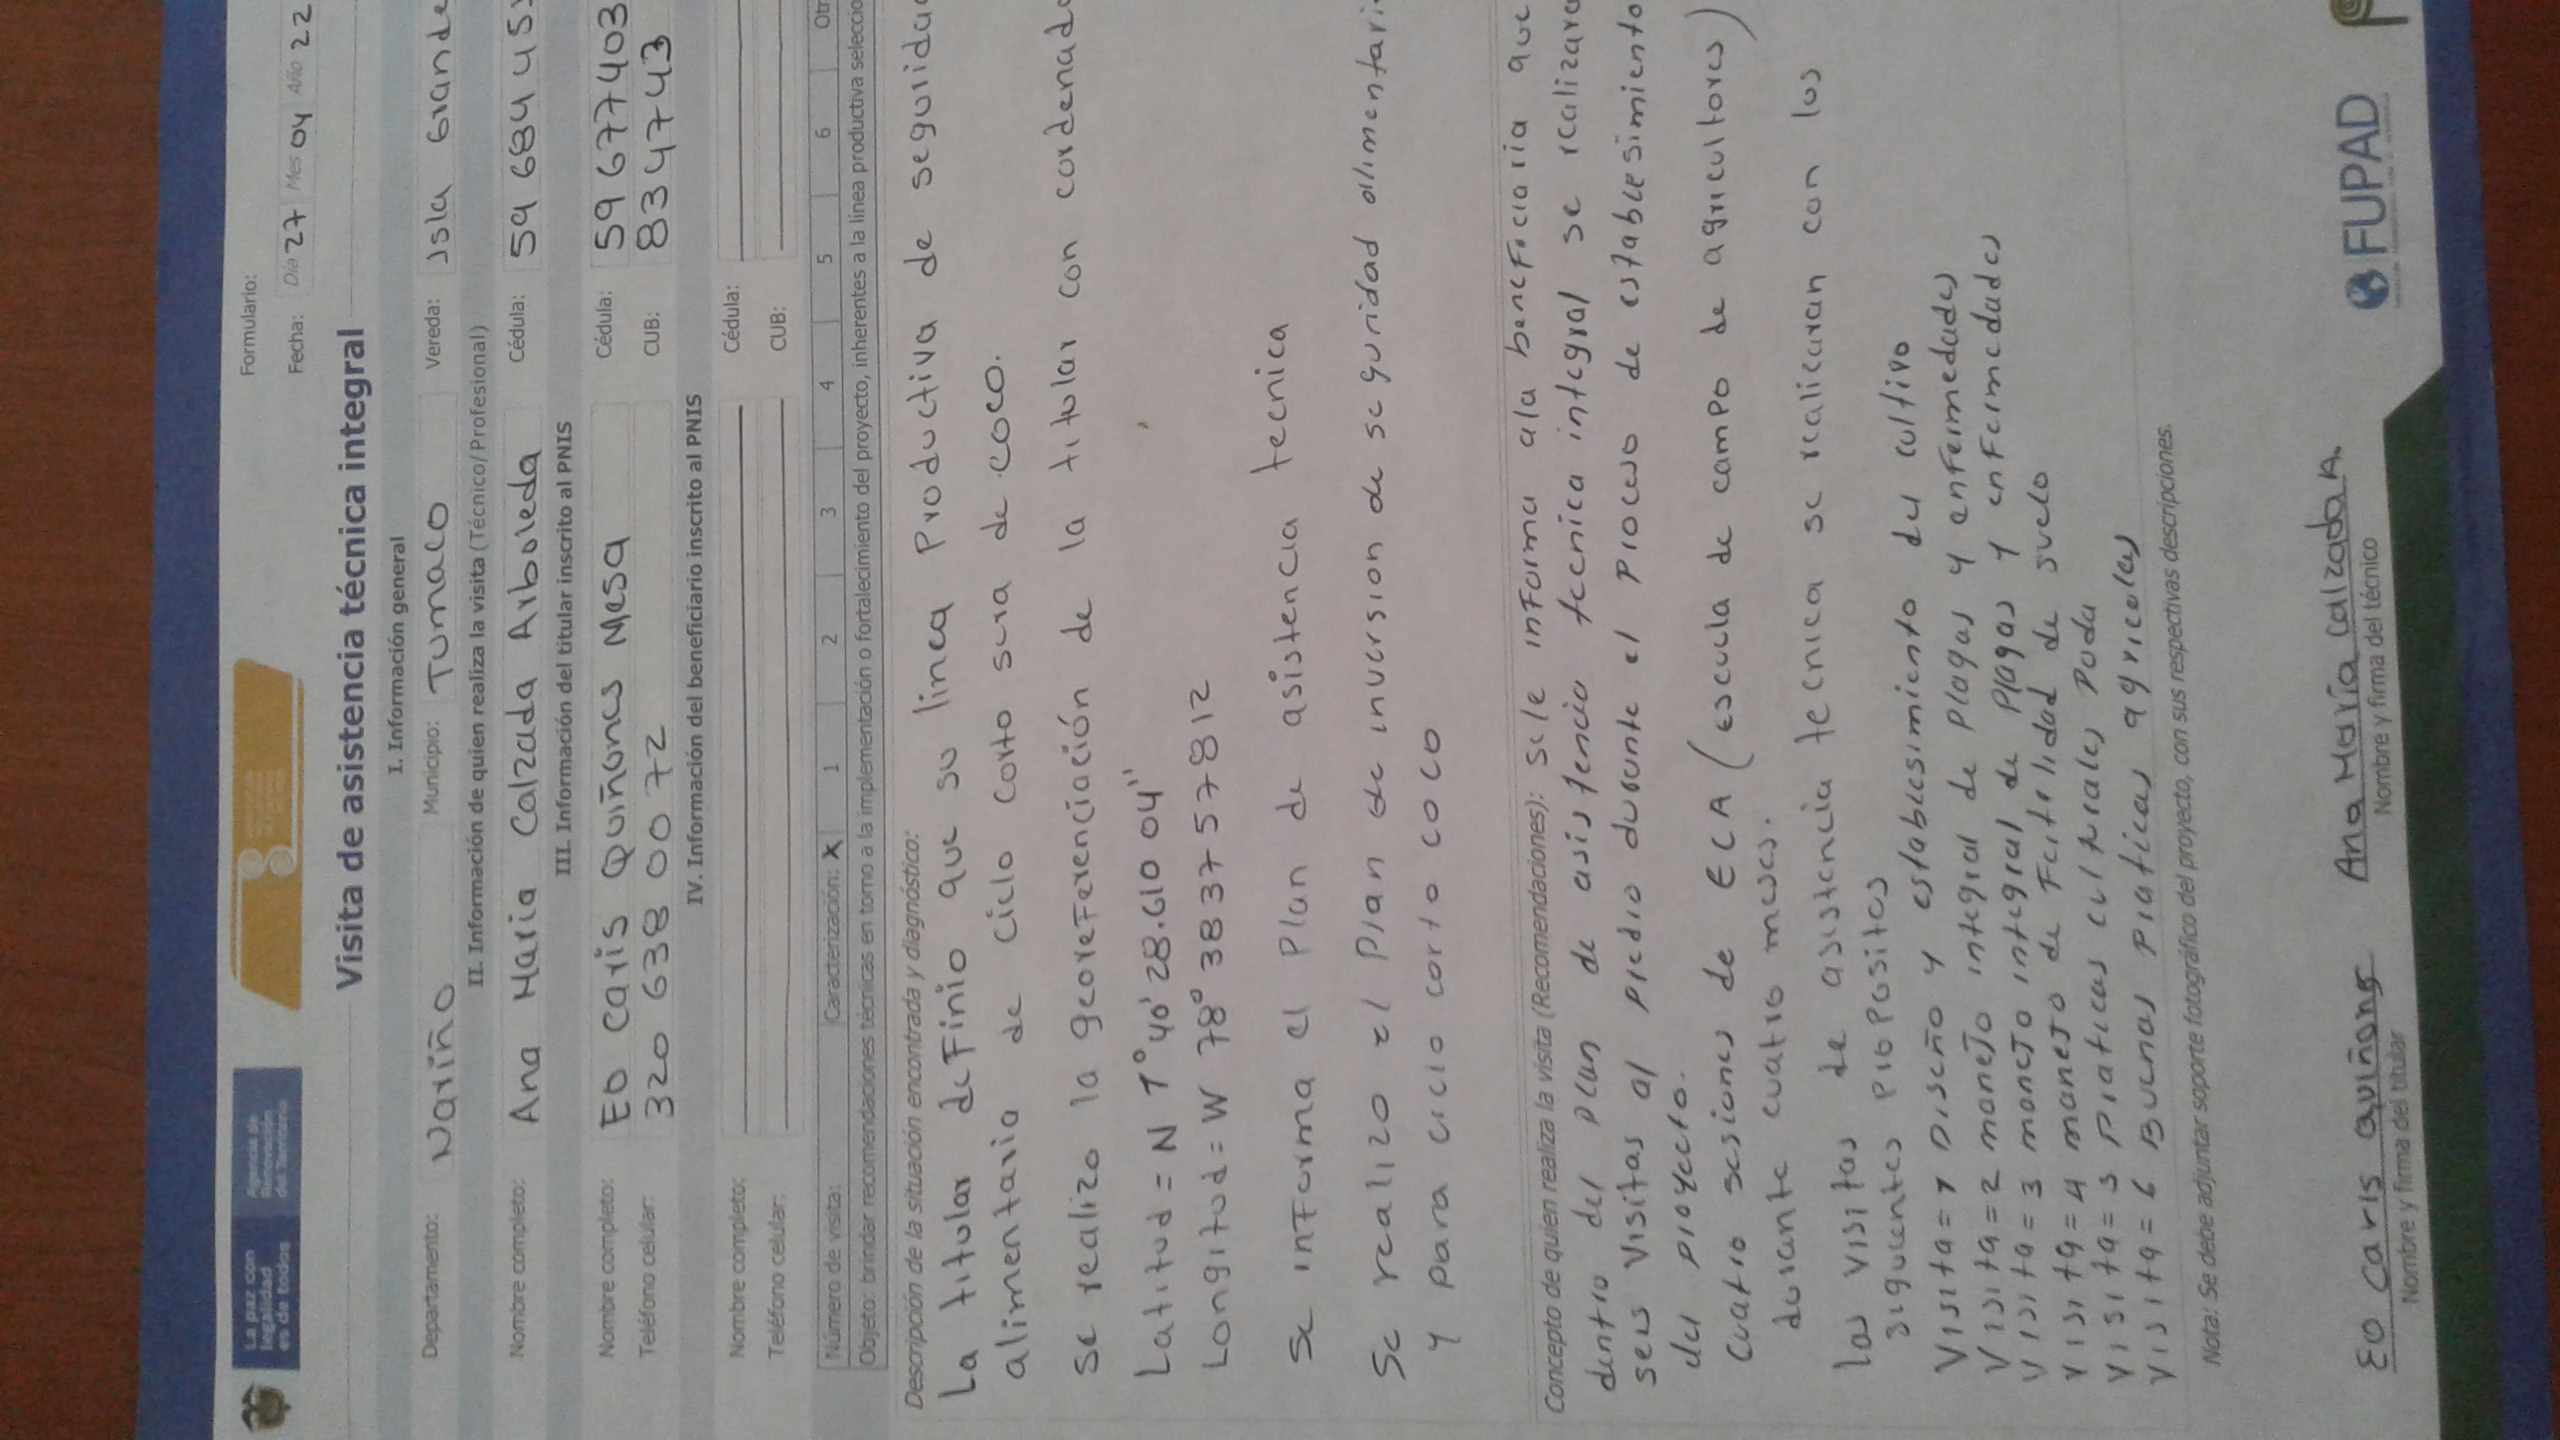 La paz con
legalidad
es de todos
Agencia de
Renovación
del Territorio
Formulario:
Fecha: Día 27 Mes 04 Año 22
Visita de asistencia técnica integral
I. Información general
Departamento: Nariño Municipio: Tumaco Vereda: Isla Grande
II. Información de quien realiza la visita (Técnico/Profesional)
Nombre completo: Ana Maria Calzada Arboleda Cédula: 59 684 45
III. Información del titular inscrito al PNIS
Nombre completo: EO Caris Quiñones Mesa Cédula: 59 677403
Teléfono celular: 320 638 00 72 CUB: 8347743
IV. Información del beneficiario inscrito al PNIS
Nombre completo: Cédula:
Teléfono celular: CUB:
Número de visita: Caracterización: X 1 2 3 4 5 6 Otr
Objeto: brindar recomendaciones técnicas en torno a la implementación o fortalecimiento del proyecto, inherentes a la línea productiva seleccio
Descripción de la situación encontrada y diagnóstico:
La titular deFinio que su linea Productiva de seguridad
alimentario de ciclo corto sera de coco.
se realizo la georeFerenciación de la titular con cordenada
Latitud = N 1° 40' 28.610 04"
Longitud = W 78° 38 37 57812
se inForma el Plan de asistencia tecnica
Se realizo el Plan de inversion de seguridad alimentari
y para ciclo corto coco
Concepto de quien realiza la visita (Recomendaciones): se le inForma ala beneFiciaria que
dentro del plan de asistencia tecnica integral se realizara
seis visitas al predio durante el Proceso de establesimiento
del proyecto.
cuatro sesiones de ECA (escuela de campo de agricultores)
durante cuatro meses.
las visitas de asistencia tecnica se realicaran con los
siguientes propositos
Visita = 1 Diseño y establesimiento del cultivo
Visita = 2 manejo integral de plagas y enfermedades
Visita = 3 manejo integral de plagas y enfermedades
Visita = 4 manejo de Fertilidad de suelo
Visita = 5 Praticas culturales Poda
Visita = 6 Buenas Praticas agricolas
Nota: Se debe adjuntar soporte fotográfico del proyecto, con sus respectivas descripciones.
EO Caris Quiñones Ana María Calzada A.
Nombre y firma del titular Nombre y firma del técnico
FUPAD